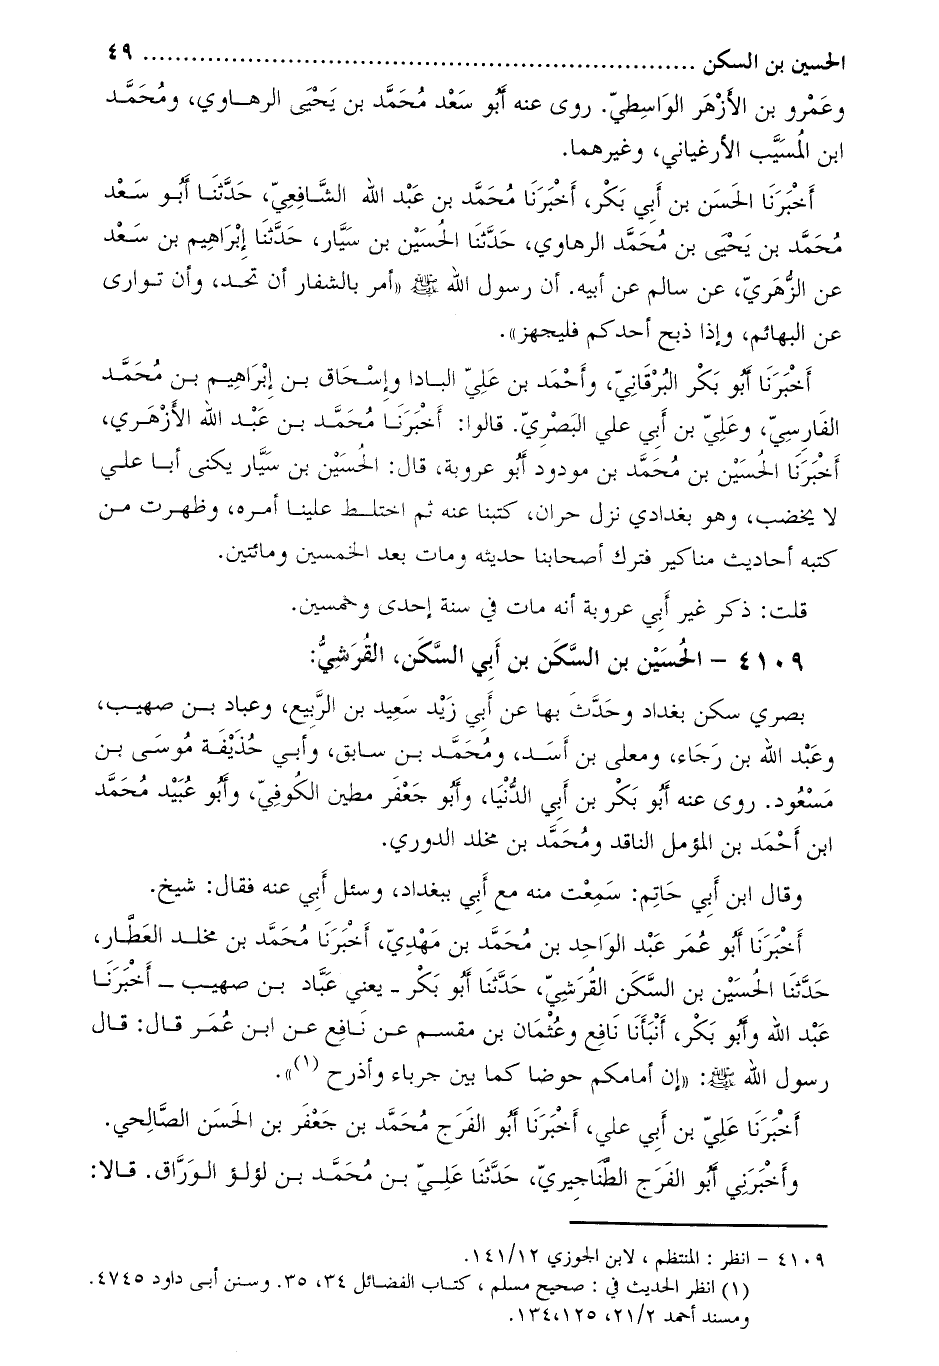 الحسين بن السكن ................................................................ ٤٩
وعَمْرو بن الأَزْهَر الوَاسِطيّ. روى عنه أَبُو سَعْد مُحَمَّد بن يَحْيَى الرهاوي، ومُحَمَّد
ابن المُسَيَّب الأرغياني، وغيرهما.
أَخْبَرَنَا الحَسَن بن أَبي بَكْر، أَخْبَرَنَا مُحَمَّد بن عَبْد الله الشَّافِعِيّ، حَدَّثَنَا أَبُو سَعْد
مُحَمَّد بن يَحْيَى بن مُحَمَّد الرهاوي، حَدَّثَنَا الحُسَيْن بن سَيَّار، حَدَّثَنَا إِبْرَاهِيم بن سَعْد
عن الزُّهَرِيّ، عن سالم عن أبيه. أن رسول الله ﷺ «أمر بالشفار أن تحد، وأن توارى
عن البهائم، وإذا ذبح أحدكم فليجهز».
أَخْبَرَنَا أَبُو بَكْر البُرْقَانِيّ، وأَحْمَد بن عَلِيّ البادا وإِسْحَاق بن إِبْرَاهِيم بن مُحَمَّد
الفَارِسِيّ، وعَلِيّ بن أبي علي البَصْرِيّ. قالوا: أَخْبَرَنَا مُحَمَّد بن عَبْد الله الأَزْهَري،
أَخْبَرَنَا الحُسَيْن بن مُحَمَّد بن مودود أَبُو عروبة، قال: الحُسَيْن بن سَيَّار يكنى أبا علي
لا يخضب، وهو بغدادي نزل حران، كتبنا عنه ثم اختلط علينا أمره، وظهرت من
كتبه أحاديث مناكير فترك أصحابنا حديثه ومات بعد الخمسين ومائتين.
قلت: ذكر غير أَبي عروبة أنه مات في سنة إحدى وخمسين.
٤١٠٩ - الحُسَيْن بن السَّكَن بن أَبي السَّكَن، القُرَشِيُّ:
بصري سكن بغداد وحَدَّثَ بها عن أَبي زَيْد سَعِيد بن الرَّبيع، وعباد بن صهيب،
وعَبْد الله بن رَجَاء، ومعلى بن أَسَد، ومُحَمَّد بن سابق، وأَبي حُذَيْفَة مُوسَى بن
مَسْعُود. روى عنه أَبُو بَكْر بن أَبي الدُّنْيَا، وأَبُو جَعْفَر مطين الكُوفِيّ، وأَبُو عُبَيْد مُحَمَّد
ابن أَحْمَد بن المؤمل الناقد ومُحَمَّد بن مخلد الدوري.
وقال ابن أَبي حَاتِم: سَمِعْت منه مع أَبي ببغداد، وسئل أَبي عنه فقال: شيخ.
أَخْبَرَنَا أَبُو عُمَر عَبْد الوَاحِد بن مُحَمَّد بن مَهْدِيّ، أَخْبَرَنَا مُحَمَّد بن مخلد العَطَّار،
حَدَّثَنَا الحُسَيْن بن السَّكَن القُرَشِيّ، حَدَّثَنَا أَبُو بَكْر ـ يعني عَبَّاد بن صهيب ـ أَخْبَرَنَا
عَبْد الله وأَبُو بَكْر، أَنْبَأَنَا نَافِع وعُثْمَان بن مقسم عن نَافِع عن ابن عُمَر قال: قال
رسول الله ﷺ: «إن أمامكم حوضا كما بين جرباء وأذرح (١)».
أَخْبَرَنَا عَلِيّ بن أَبي علي، أَخْبَرَنَا أَبُو الفَرَج مُحَمَّد بن جَعْفَر بن الحَسَن الصَّالِحي.
وأَخْبَرَنِي أَبُو الفَرَج الطَّنَاجِيرِيّ، حَدَّثَنَا عَلِيّ بن مُحَمَّد بن لؤلؤ الوَرَّاق. قالا:
٤١٠٩ - انظر : المنتظم ، لابن الجوزي ١٤١/١٢.
(١) انظر الحديث في : صحيح مسلم ، كتاب الفضائل ٣٤، ٣٥. وسنن أبى داود ٤٧٤٥.
ومسند أحمد ٢١/٢، ١٢٥، ١٣٤.